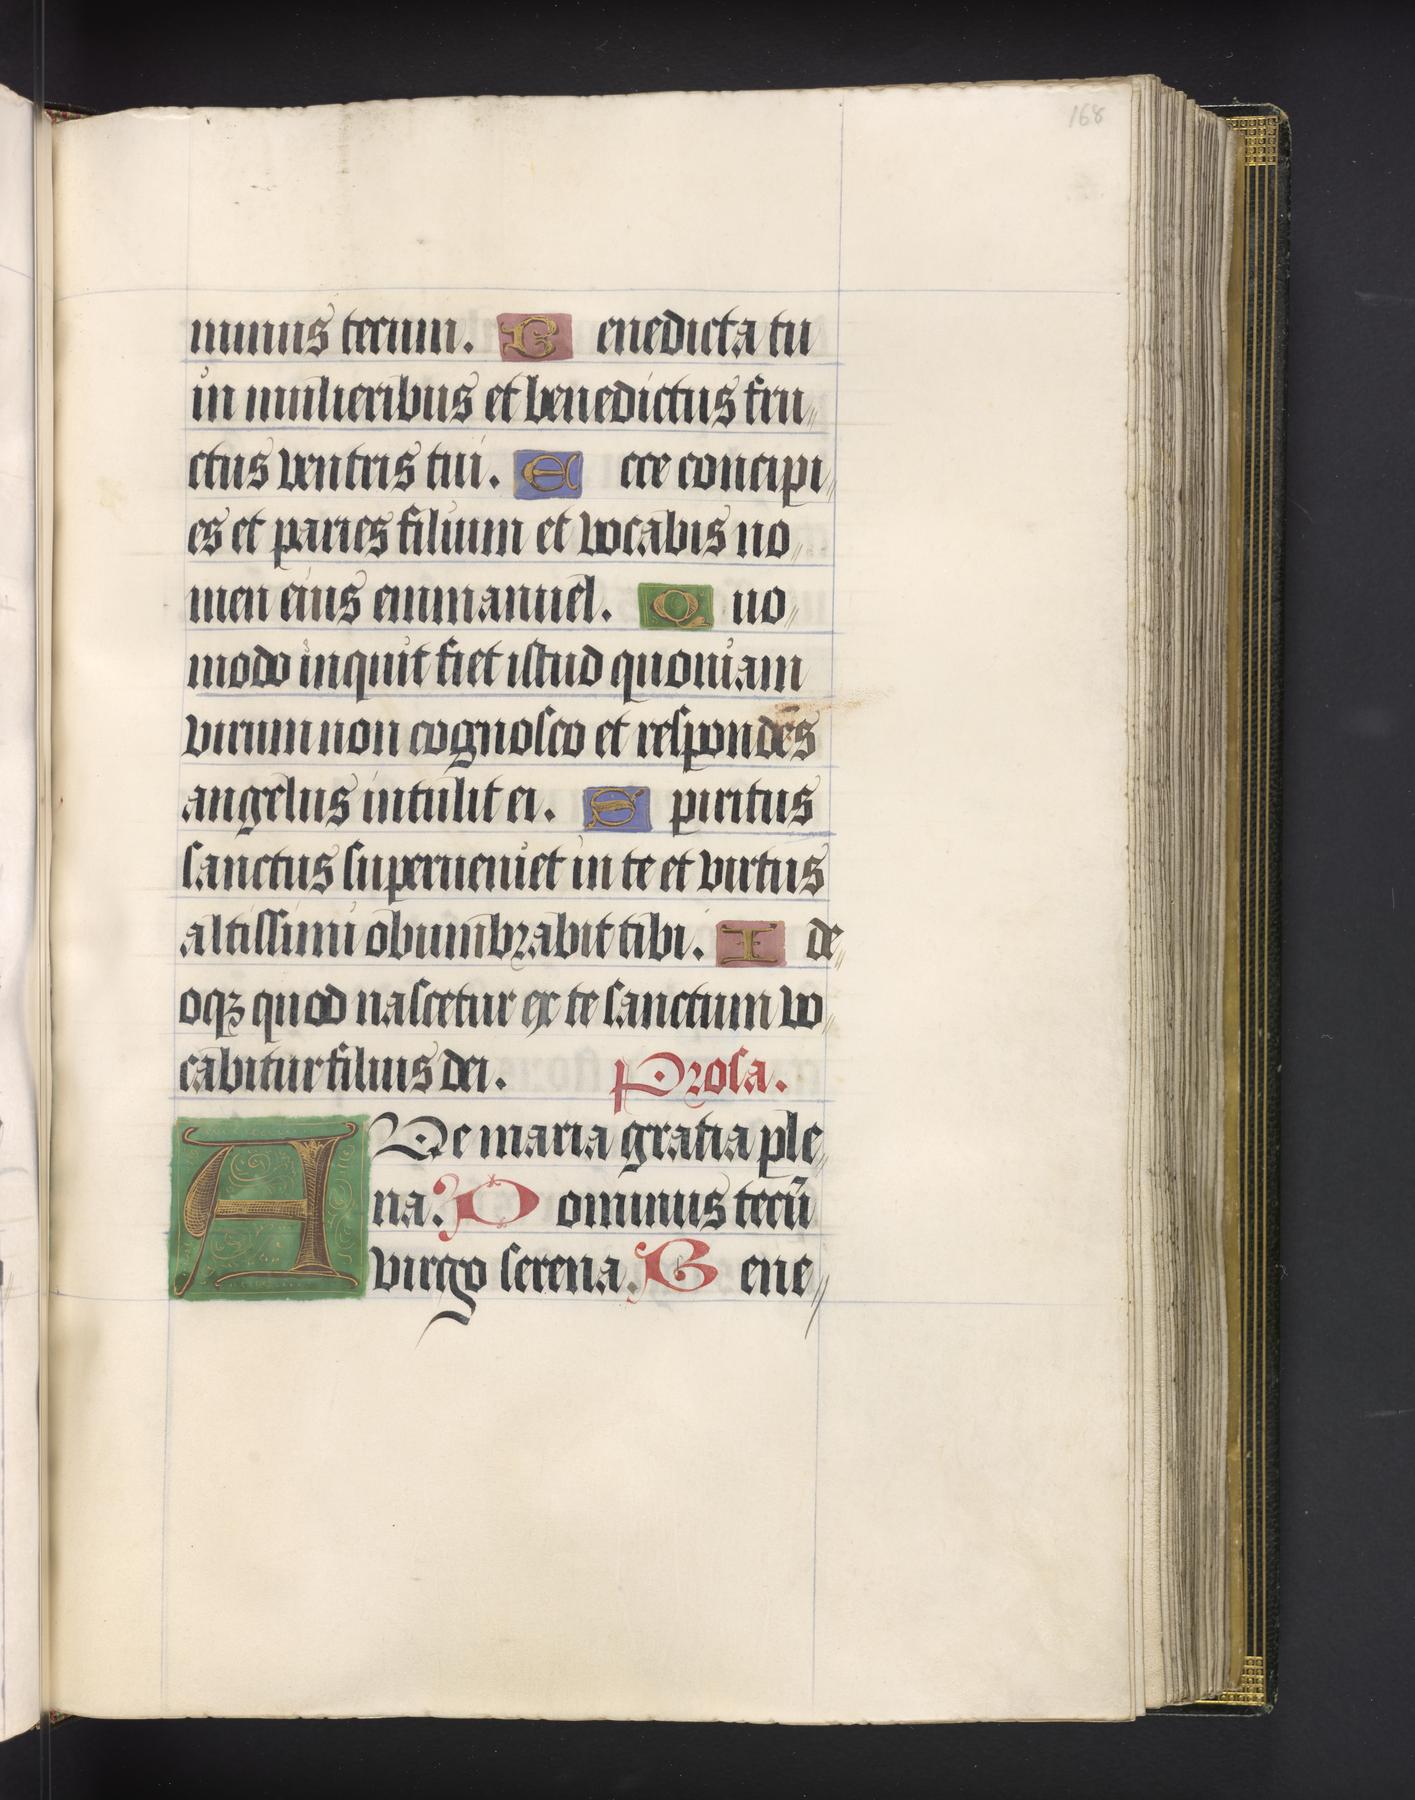 168
minus tecum. Benedicta tu
in mulieribus et benedictus fru//
ctus ventris tui. Ecce concipi//
es et paries filium et vocabis no//
men eius emmanuel. Quo//
modo inquit fiet istud quoniam
virum non cognosco et respondēs
angelus intulit ei. Spiritus
sanctus superueniet in te et virtus
altissimi obumbrabit tibi. Ide//
oqꝫ quod nascetur ex te sanctum vo//
cabitur filius dei. Prosa.
AVe maria gratia ple//
na. Dominus tecū
virgo serena. Bene//